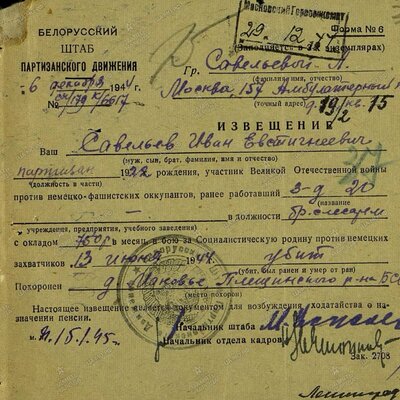 Московский Горвоенкомат
29. 12. 44
БЕЛОРУССКИЙ
ШТАБ
ПАРТИЗАНСКОГО ДВИЖЕНИЯ
Форма № 6
(Заполняется в экземплярах)
6 декабря 1944 г.
№
Гр. Савельевой А.
(фамилия, отчество)
Москва 157 Амбулаторный
(точный адрес) д. 19/2 кв. 15
ИЗВЕЩЕНИЕ
Ваш Савельев Иван Евстигнеевич
(муж, сын, брат, фамилия, имя и отчество)
партизан 1922 рождения, участник Великой Отечественной войны
(должность в части)
против немецко-фашистских оккупантов, ранее работавший з-д 20
(название
в должности бр. слесарем
учреждения, предприятия, учебного заведения)
с окладом 750 р в месяц, в бою за Социалистическую родину против немецких
захватчиков 13 июня 1944 убит
(убит, был ранен и умер от ран)
Похоронен д. Маковье Плещинского р-на БС
(место похорон)
Настоящее извещение является документом для возбуждения ходатайства о на-
значении пенсии.
Начальник штаба
15.1.45 г.
Начальник отдела кадров
Зак. 2708
Ленинград